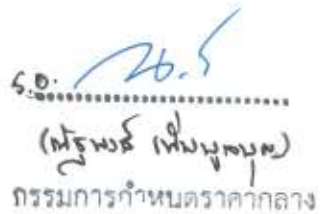 ร.อ.
(ณัฐพงส์ เพิ่มพูนบุญ)
กรรมการกำหนดราคากลาง